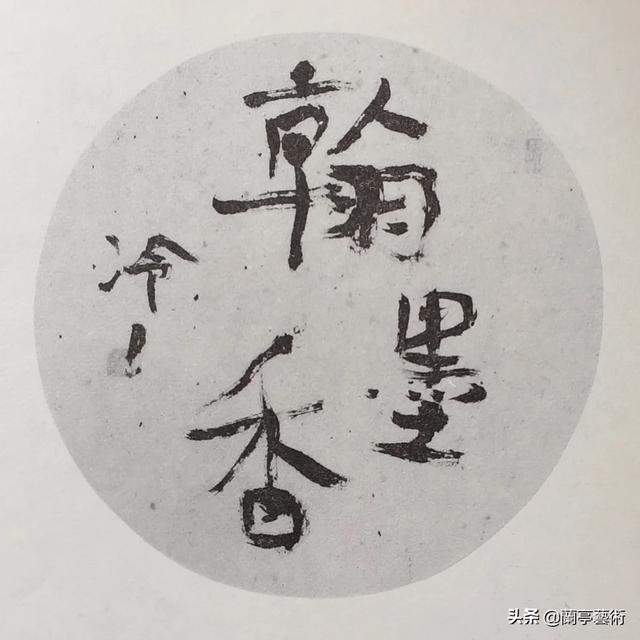 翰墨香
冷
头条 @蘭亭藝術